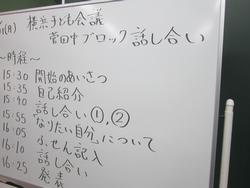 (月) 横浜子ども会議
菅田中ブロック 話し合い
〜時程〜
15:30 開始のあいさつ
15:35 自己紹介
15:40 話し合い①,②
15:55 "なりたい自分"について
16:05 ふせん記入
16:10 話し合い
16:25 発表